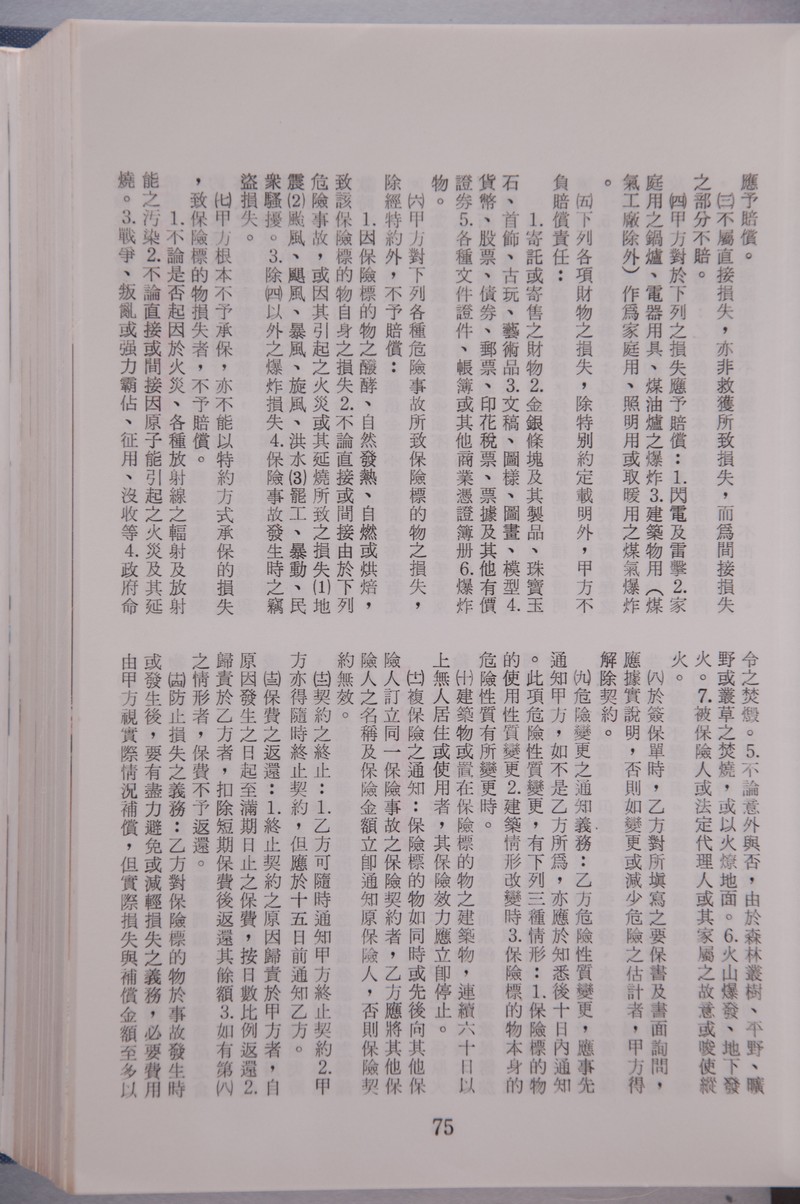 應予賠償。
㈢不屬直接損失，亦非救獲所致損失，而爲間接損失
之部分不賠。
㈣甲方對於下列之損失應予賠償：1.閃電及雷擊2.家
庭用之鍋爐、電器用具、煤油爐之爆炸3.建築物用（煤
氣工廠除外）作爲家庭用、照明用或取暖用之煤氣爆炸
。
㈤下列各項財物之損失，除特別約定載明外，甲方不
負賠償責任：
1.寄託或寄售之財物2.金銀條塊及其製品、珠寶玉
石、首飾、古玩、藝術品3.文稿、圖樣、圖畫、模型4.
貨幣、股票、債券、郵票、印花稅票、票據及其他有價
證券5.各種文件證件、帳簿或其他商業憑證簿册6.爆炸
物。
㈥甲方對下列各種危險事故所致保險標的物之損失，
除經特約外，不予賠償：
1.因保險標的物之醱酵、自然發熱、自燃或烘焙，
致該保險標的物自身之損失2.不論直接或間接由於下列
危險事故，或因其引起之火災或其延燒所致之損失⑴地
震⑵颱風、颶風、暴風、旋風、洪水⑶罷工、暴動、民
衆騷擾。3.除㈣以外之爆炸損失4.保險事故發生時之竊
盜損失。
㈦甲方根本不予承保，亦不能以特約方式承保的損失
，致保險標的物損失者，不予賠償。
1.不論是否起因於火災、各種放射線之輻射及放射
能之汚染2.不論直接或間接因原子能引起之火災及其延
燒。3.戰爭、叛亂或强力霸佔、征用、沒收等4.政府命
令之焚燬。5.不論意外與否，由於森林叢樹、平野、曠
野或叢草之焚燒，或以火燎地面。6.火山爆發、地下發
火。7.被保險人或法定代理人或其家屬之故意或唆使縱
火。
㈧於簽保單時，乙方對所塡寫之要保書及書面詢問，
應據實說明，否則如變更或減少危險之估計者，甲方得
解除契約。
㈨危險變更之通知義務：乙方危險性質變更，應事先
通知甲方，如不是乙方所爲，亦應於知悉後十日內通知
。此項危險性質變更，有下列三種情形：1.保險標的物
的使用性質變更2.建築情形改變時3.保險標的物本身的
危險性質有所變更時。
㈩建築物或置在保險標的物之建築物，連續六十日以
上無人居住或使用者，其保險效力應立卽停止。
(十一)複保險之通知：保險標的物如同時或先後向其他保
險人訂立同一保險事故之保險契約者，乙方應將其他保
險人之名稱及保險金額立卽通知原保險人，否則保險契
約無效。
(十二)契約之終止：1.乙方可隨時通知甲方終止契約2.甲
方亦得隨時終止契約，但應於十五日前通知乙方。
(十三)保費之返還：1.終止契約之原因歸責於甲方者，自
原因發生之日起至滿期日止之保費，按日數比例返還2.
歸責於乙方者，扣除短期保費後返還其餘額3.如有第㈧
之情形者，保費不予返還。
(十四)防止損失之義務：乙方對保險標的物於事故發生時
或發生後，要有盡力避免或減輕損失之義務，必要費用
由甲方視實際情況補償，但實際損失與補償金額至多以
75